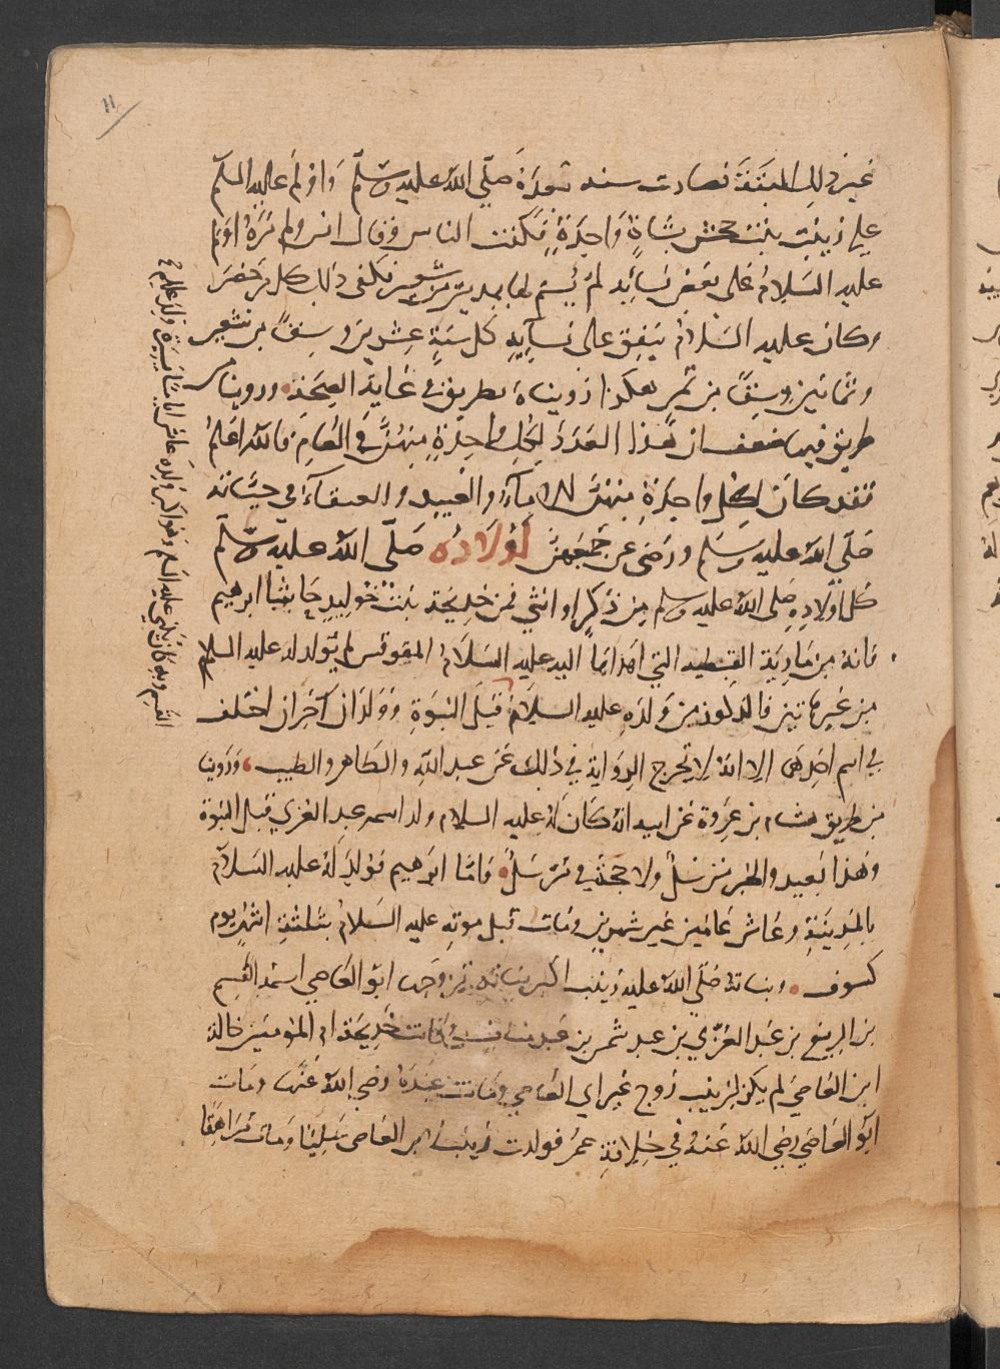 ١١
غير ذلك البتة فصارت سنة بعده صلى الله عليه وسلم واولم عليه السلم
على زينب بنت جحش بشاة واحدة فكفت الناس وقال انس ولم نره اولم
عليه السلام على بعض نسائه لم يسم لنا بمدين من شعير فكفى ذلك كل من حضر
وكان عليه السلام ينفق على نسائه كل سنة عشرين وسقا من شعير
وثمانين وسقا من تمر هكذا رويناه بطريق في غاية الصحة وروينا من
طريق فيها ضعف ان هذا العدد لكل واحدة منهن في العام فالله اعلم
فقد كان لكل واحدة منهن الاماء والعبيد والعتقاء في حياته
صلى الله عليه وسلم ورضي عن جميعهن اولاده صلى الله عليه وسلم
كل اولاده صلى الله عليه وسلم من ذكر او انثى فمن خديجة بنت خويلد حاشا ابرهيم
فانه من مارية القبطية التي اهداها اليه عليه السلام المقوقس لم يولد له عليه السلام
من غيرهاتين فالذكور من ولده عليه السلام قبل النبوة وولدان آخران اختلف
في اسم احدهما الا انه لا تخرج الرواية في ذلك عن عبد الله والطاهر والطيب وروينا
من طريق هشام بن عروة عن ابيه انه كان له عليه السلام ولد اسمه عبد العزي قبل النبوة
وهذا بعيد والخبر مرسل ولا حجة في مرسل واما ابرهيم فولد له عليه السلام
بالمدينة وعاش عامين غير شهرين ومات قبل موته عليه السلام بثلثة اشهر يوم
كسوف وبناته صلى الله عليه زينب اكبر بناته تزوجها ابو العاصي اسمه القسم
بن الربيع بن عبد العزي بن عبد شمس بن عبد مناف وكانت خديجة ام المؤمنين خالة
ابن العاصي لم يكن لزينب زوج غير ابي العاصي وماتت عنده رضي الله عنها ومات
ابو العاصي رضي الله عنه في خلافة عمر فولدت زينب من ابي العاصي عليا ومات مراهقا
القسم وبه كان يكنى عليه السلم وهو اكبر ولده عاش اياما يسيرة ولد عليه